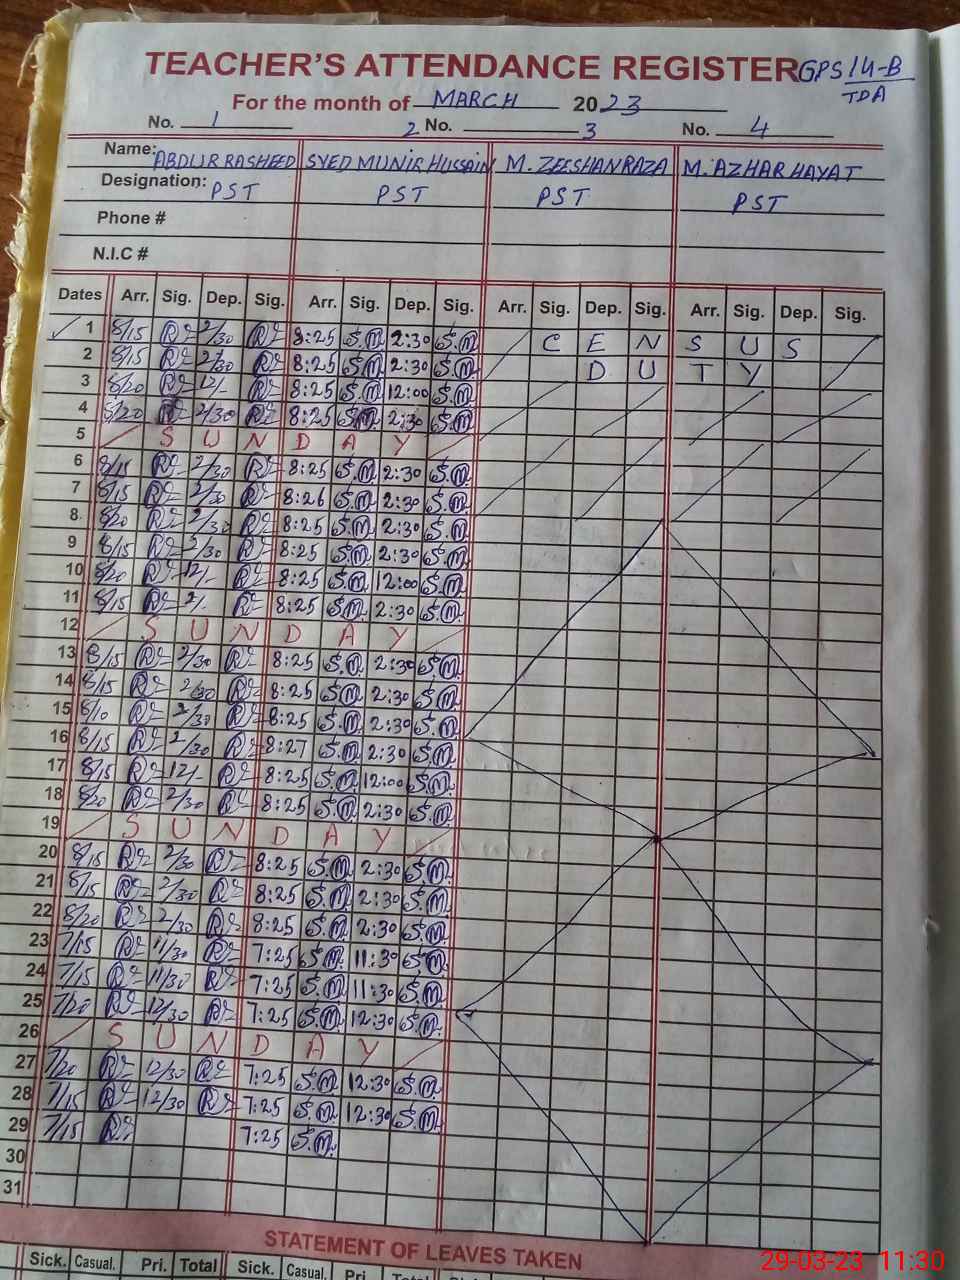 TEACHER'S ATTENDANCE REGISTER GPS 14-B
For the month of MARCH 2023 TDA
No. 1 2 No. 3 No. 4
Name: ABDUR RASHEED SYED MUNIR HUSSAIN M. ZEESHAN RAZA M. AZHAR HAYAT
Designation: PST PST PST PST
Phone #
N.I.C #
Dates Arr. Sig. Dep. Sig. Arr. Sig. Dep. Sig. Arr. Sig. Dep. Sig. Arr. Sig. Dep. Sig.
1 8/15 2/30 8:25 S.M 2:30 S.M C E N S U S
2 8/15 2/30 8:25 S.M 2:30 S.M D U T Y
3 8/20 12/- 8:25 S.M 12:00 S.M
4 8/20 2/30 8:25 S.M 2:30 S.M
5 S U N D A Y
6 8/15 2/30 8:25 S.M 2:30 S.M
7 8/15 2/30 8:26 S.M 2:30 S.M
8 8/20 2/30 8:25 S.M 2:30 S.M
9 8/15 2/30 8:25 S.M 2:30 S.M
10 8/20 12/- 8:25 S.M 12:00 S.M
11 8/15 2/- 8:25 S.M 2:30 S.M
12 S U N D A Y
13 8/15 2/30 8:25 S.M 2:30 S.M
14 8/15 2/30 8:25 S.M 2:30 S.M
15 8/10 2/30 8:25 S.M 2:30 S.M
16 8/15 2/30 8:27 S.M 2:30 S.M
17 8/15 12/- 8:25 S.M 12:00 S.M
18 8/20 2/30 8:25 S.M 2:30 S.M
19 S U N D A Y
20 8/15 2/30 8:25 S.M 2:30 S.M
21 8/15 2/30 8:25 S.M 2:30 S.M
22 8/20 2/30 8:25 S.M 2:30 S.M
23 7/15 11/30 7:25 S.M 11:30 S.M
24 7/15 11/30 7:25 S.M 11:30 S.M
25 7/20 12/30 7:25 S.M 12:30 S.M
26 S U N D A Y
27 7/20 12/30 7:25 S.M 12:30 S.M
28 7/15 12/30 7:25 S.M 12:30 S.M
29 7/15 7:25 S.M
30
31
STATEMENT OF LEAVES TAKEN
Sick. Casual. Pri. Total Sick. Casual. Pri Total Sick.
29-03-23 11:30